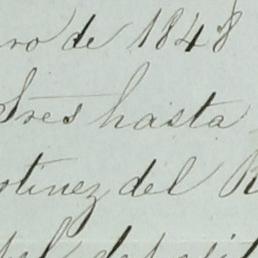 ro de 1848
Tres hasta
rtinez del R